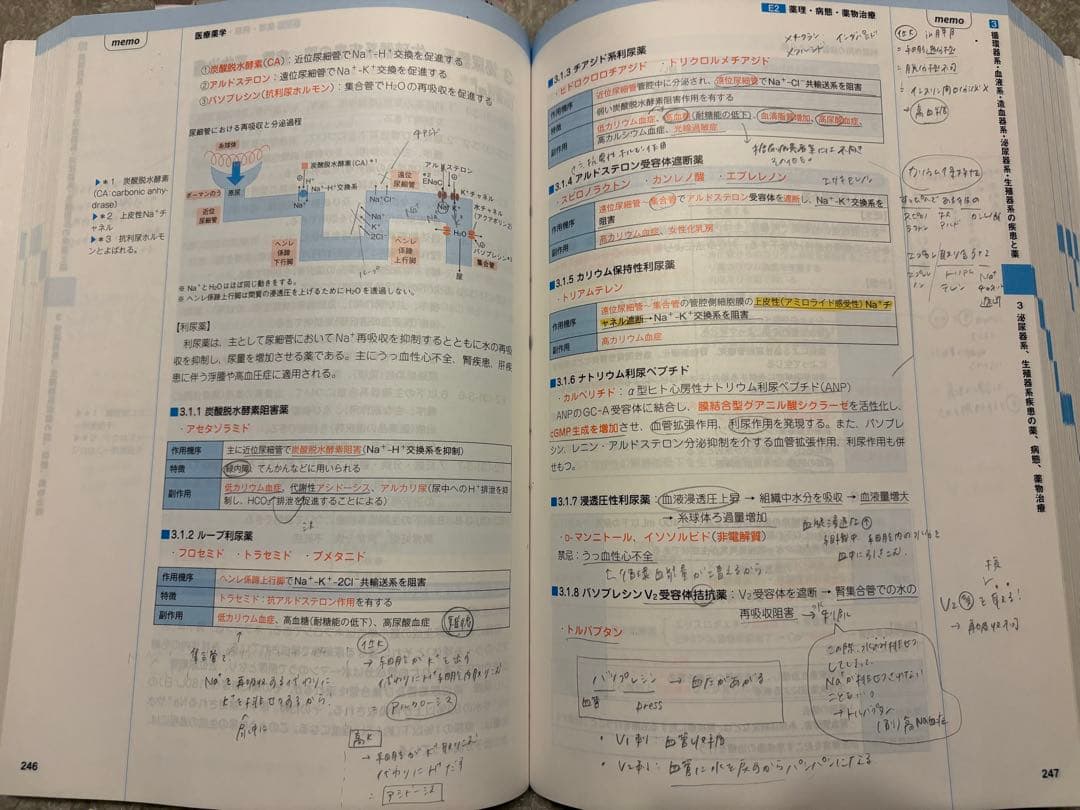 memo
医療薬学
①炭酸脱水酵素(CA)：近位尿細管でNa⁺-H⁺交換を促進する
②アルドステロン：遠位尿細管でNa⁺-K⁺交換を促進する
③バソプレシン(抗利尿ホルモン)：集合管でH₂Oの再吸収を促進する
尿細管における再吸収と分泌過程
糸球体
ボーマンのう
原尿
近位
尿細管
炭酸脱水酵素(CA)*1
H⁺
Na⁺-H⁺交換系
Na⁺
ヘンレ
係蹄
下行脚
Na⁺
K⁺
2Cl⁻
ヘンレ
係蹄
上行脚
遠位
尿細管
Na⁺Cl⁻
アルドステロン
*2
ENaC
K⁺チャネル
水チャネル
(アクアポリン2)
H₂O
バソプレシン*3
集合管
尿
ループ
▶*1 炭酸脱水酵素
(CA:carbonic anhy-
drase)
▶*2 上皮性Na⁺チ
ャネル
▶*3 抗利尿ホルモ
ンとよばれる。
※ Na⁺とH₂Oはほぼ同じ動きをする。
※ ヘンレ係蹄上行脚は間質の浸透圧を上げるためにH₂Oを透過しない。
【利尿薬】
利尿薬は、主として尿細管においてNa⁺再吸収を抑制するとともに水の再吸
収を抑制し、尿量を増加させる薬である。主にうっ血性心不全、腎疾患、肝疾
患に伴う浮腫や高血圧症に適用される。
■3.1.1 炭酸脱水酵素阻害薬
・アセタゾラミド
作用機序 主に近位尿細管で炭酸脱水酵素阻害(Na⁺-H⁺交換系を抑制)
特徴 緑内障、てんかんなどに用いられる
副作用 低カリウム血症、代謝性アシドーシス、アルカリ尿(尿中へのH⁺排泄を抑
制し、HCO₃⁻排泄を促進することによる)
■3.1.2 ループ利尿薬
・フロセミド ・トラセミド ・ブメタニド
作用機序 ヘンレ係蹄上行脚でNa⁺-K⁺-2Cl⁻共輸送系を阻害
特徴 トラセミド：抗アルドステロン作用を有する
副作用 低カリウム血症、高血糖(耐糖能の低下)、高尿酸血症
難聴
集合管で
Na⁺を再吸収する代わりに
K⁺を排せつするから。
尿中に
低K
→ 細胞がK⁺を出す
代わりにH⁺細胞内取りこむ
= アルカローシス
高K
→ 細胞がK⁺取りこむ
代わりにH⁺だす
= アシドーシス
246
E2 薬理・病態・薬物治療
memo
メフルシド
■3.1.3 チアジド系利尿薬
・ヒドロクロロチアジド ・トリクロルメチアジド
作用機序 近位尿細管管腔中に分泌され、遠位尿細管でNa⁺-Cl⁻共輸送系を阻害
特徴 弱い炭酸脱水酵素阻害作用を有する
副作用 低カリウム血症、高血糖(耐糖能の低下)、血清脂質増加、高尿酸血症、
高カルシウム血症、光線過敏症
■3.1.4 アルドステロン受容体遮断薬
・スピロノラクトン ・カンレノ酸 ・エプレレノン
エサキセレノン
作用機序 遠位尿細管～集合管でアルドステロン受容体を遮断し、Na⁺-K⁺交換系を
阻害
副作用 高カリウム血症、女性化乳房
■3.1.5 カリウム保持性利尿薬
・トリアムテレン
作用機序 遠位尿細管～集合管の管腔側細胞膜の上皮性(アミロライド感受性)Na⁺チ
ャネル遮断→Na⁺-K⁺交換系を阻害
副作用 高カリウム血症
■3.1.6 ナトリウム利尿ペプチド
・カルペリチド：α型ヒト心房性ナトリウム利尿ペプチド(ANP)
ANPのGC-A受容体に結合し、膜結合型グアニル酸シクラーゼを活性化し、
cGMP生成を増加させ、血管拡張作用、利尿作用を発現する。また、バソプレ
シン、レニン・アルドステロン分泌抑制を介する血管拡張作用、利尿作用も併
せもつ。
■3.1.7 浸透圧性利尿薬：血液浸透圧上昇 → 組織中水分を吸収 → 血液量増大
→ 糸球体ろ過量増加
・D-マンニトール、イソソルビド(非電解質)
禁忌：うっ血性心不全
循環血液量が増えるから
■3.1.8 バソプレシンV₂受容体拮抗薬：V₂受容体を遮断 → 腎集合管での水の
再吸収阻害
・トルバプタン
バソプレシン → 血圧があがる
血管 press
・V₁刺: 血管収縮
・V₂刺: 血管に水を戻すからパンパンになる
この際、水分だけ排せつ
してしまって、
Na⁺が排せつされない
こともある。
→トルバプタン
(副)高Na血症
3
循環器系・血液系・造血器系・泌尿器系・生殖器系の疾患と薬
3 泌尿器系、生殖器系疾患の薬、病態、薬物治療
247